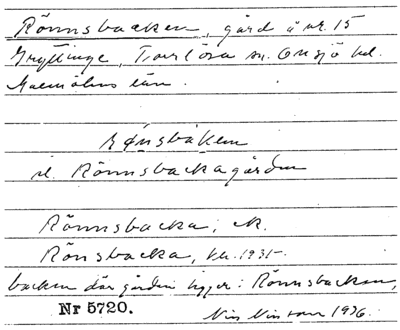 Rönnsbacken, gård å nr. 15
Gryttinge, Torrlösa sn. Onsjö hd.
Malmöhus län.
rønsbaken
el. Rönnsbackagården
Rönnsbacka, ek.
Rönsbacka, 1931
backen där gården ligger: Rönnsbacken,
Nr 5720.
Nils Nilsson 1936.